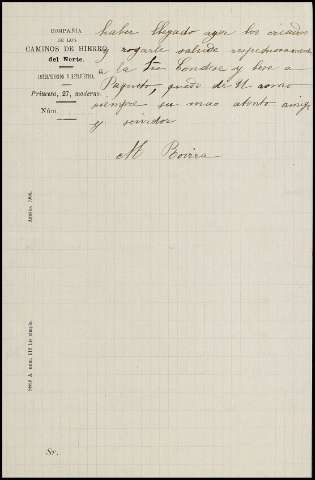 COMPAÑÍA
DE LOS
CAMINOS DE HIERRO
del Norte.
Primero, 27, moderno.
Núm.
haber llegado ayer los criados
y rogarle salude respetuosamente
a la Sra Condesa y bese a
Paquito, quedo de U. como
siempre su mas atento amigo
y servidor
M Rovira
Sr.